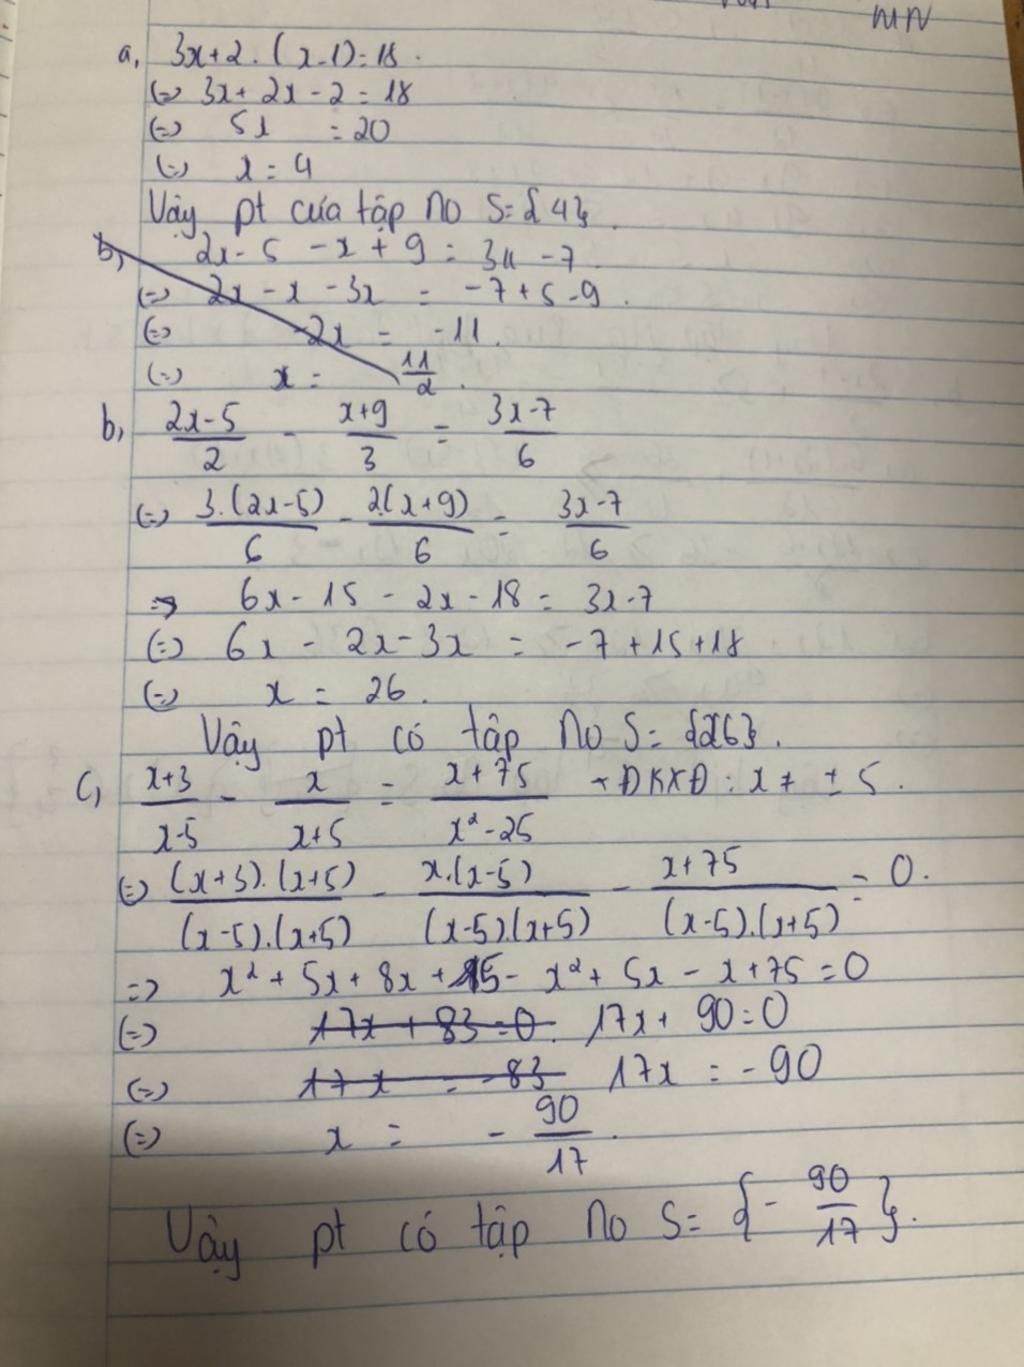 MN
a, 3x+2.(x-1)=18.
(=) 3x+2x-2=18
(=) 5x =20
(=) x=4
Vậy pt của tập no S={4}.
b, 2x-5-x+9=3x-7
(=) 2x-x-3x = -7+5-9.
(=) -2x = -11.
(=) x = 11/2.
b, (2x-5)/2 - (x+9)/3 = (3x-7)/6
(=) 3.(2x-5)/6 - 2(x+9)/6 = (3x-7)/6
=> 6x-15-2x-18=3x-7
(=) 6x-2x-3x = -7+15+18
(=) x = 26.
Vậy pt có tập no S={26}.
c, (x+3)/(x-5) - x/(x+5) = (x+75)/(x²-25) + ĐKXĐ: x ≠ ±5.
(=) (x+3).(x+5)/(x-5).(x+5) - x.(x-5)/(x-5).(x+5) - (x+75)/(x-5).(x+5) = 0.
=> x²+5x+8x+15-x²+5x-x+75=0
(=) 17x+83=0. 17x+90=0
(=) 17x = -83 17x = -90
(=) x = -90/17.
Vậy pt có tập no S={-90/17}.